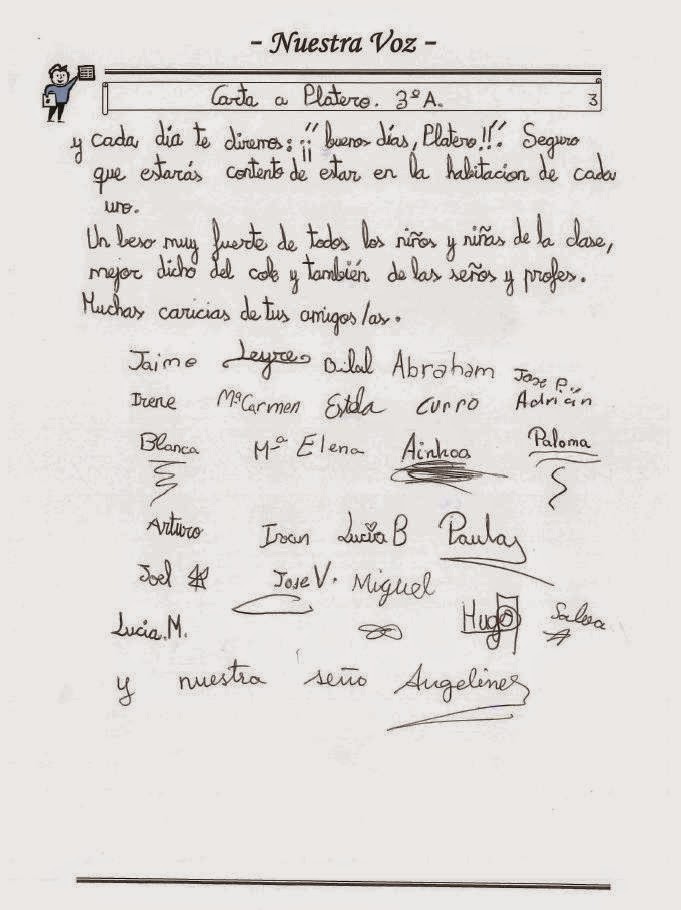 - Nuestra Voz -
Carta a Platero. 3º A. 3
y cada día te diremos: ¡¡ buenos días, Platero!!. Seguro
que estarás contento de estar en la habitacion de cada
uno.
Un beso muy fuerte de todos los niños y niñas de la clase,
mejor dicho del cole y también de las seños y profes.
Muchas caricias de tus amigos/as.
Jaime Leyre Bilal Abraham Jose P.
Irene Mª Carmen Estela Curro Adrián
Blanca Mª Elena Ainhoa Paloma
Arturo Ivan Lucía B Paula
Joel Jose V. Miguel
Lucia.M. Hugo
y nuestra seño Angelines